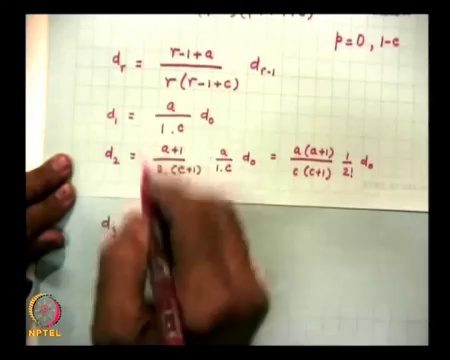 p=0, 1-c
d_r = \frac{r-1+a}{r(r-1+c)} d_{r-1}
d_1 = \frac{a}{1.c} d_0
d_2 = \frac{a+1}{2.(c+1)} \frac{a}{1.c} d_0 = \frac{a(a+1)}{c(c+1)} \frac{1}{2!} d_0
d_3
NPTEL